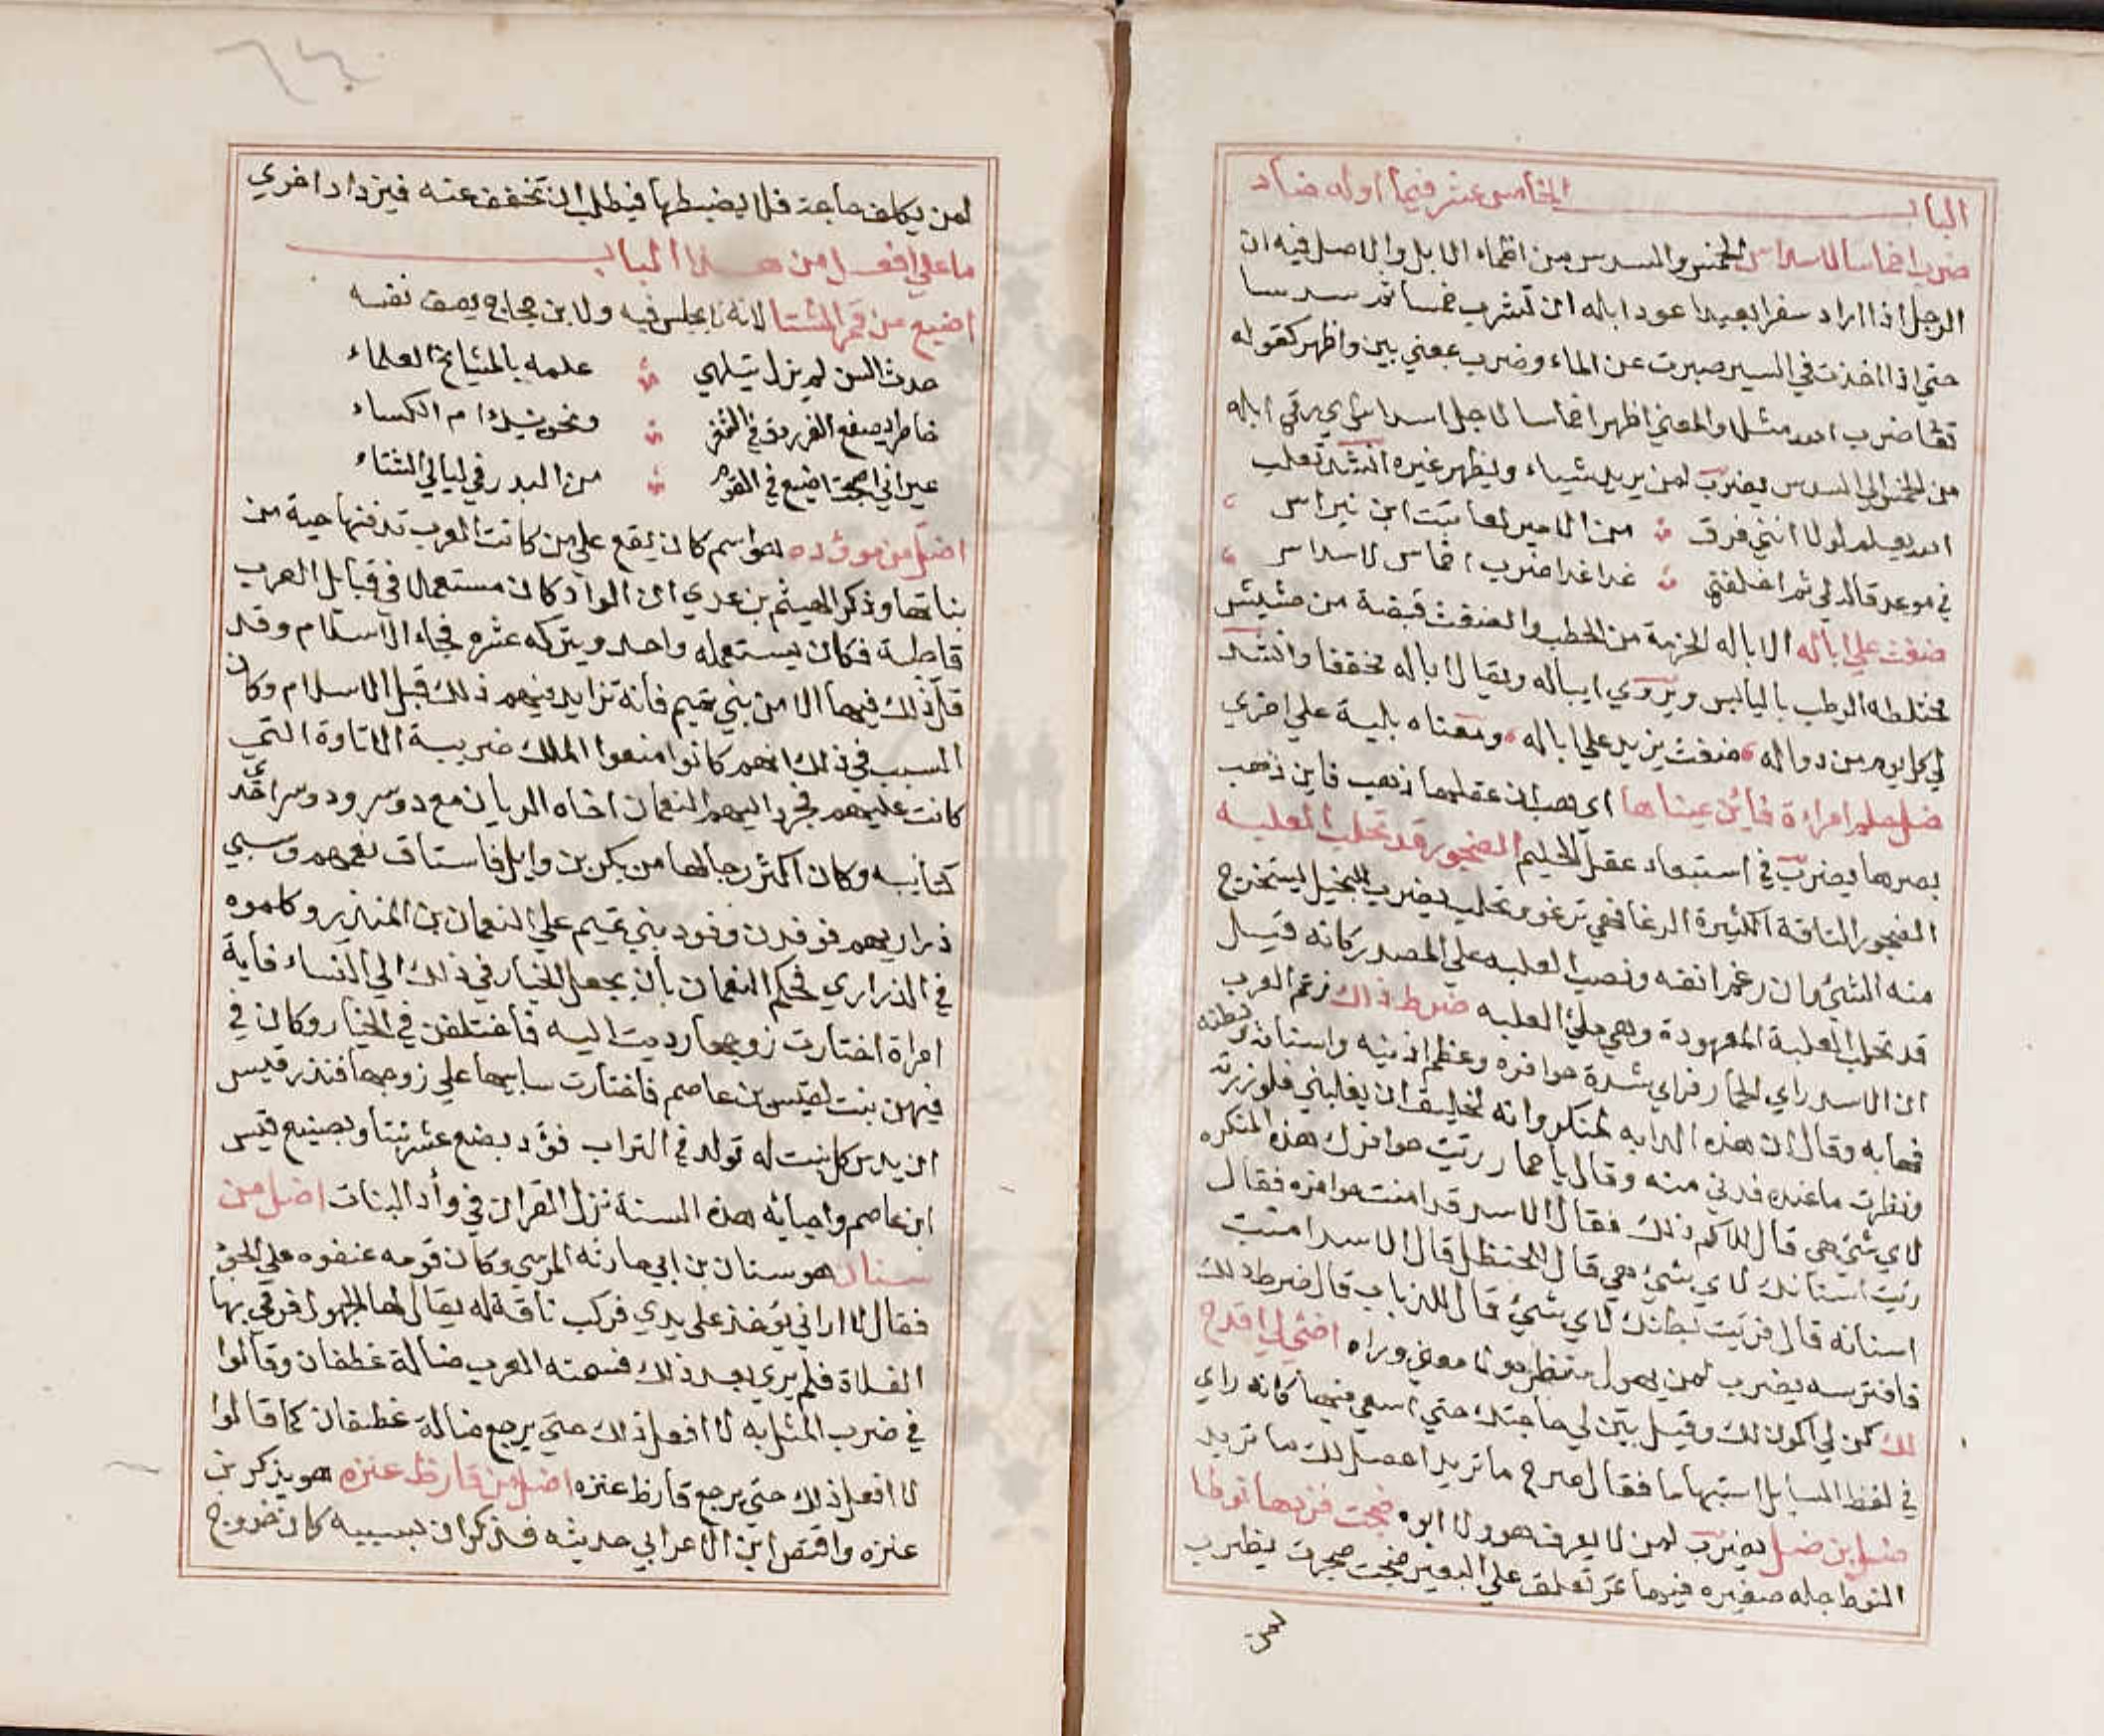 الباب الخامس عشر فيما اوله ضاد
ضرب اخماسا لاسداس الخمس والسدس من اظماء الابل والاصل فيه ان
الرجل اذا اراد سفرا بعيدا عود ابله ان تشرب خمسا ثم سدسا
حتي اذا اخذت في السير صبرت عن الماء وضرب بمعني بين واظهر كقوله
تعا ضرب الله مثلا والمعني اظهر اخماسا لاجل اسداس اي رقي ابله
من الخمس الي السدس يضرب لمن يريد شياء ويظهر غيره انشد ثعلب
الله يعلم لولا انني فرق من الامير لعاتبت ابن نبراس
في موعد قاله لي ثم اخلفني غدا غدا ضرب اخماس لاسداس
ضغث علي اباله الاباله الحزمة من الحطب والضغث قبضة من حشيش
مختلطه الرطب باليابس ويروي ايباله ويقال اباله مخففا وانشد
لي كل يوم من دواله ضغث يزيد علي اباله ومعناه بلية علي اخري
ضل حلم امراة فاين عيناها اي هب ان عقلها ذهب فاين ذهب
بصرها يضرب في استبعاد عقل الحليم الضجور قد تحلب العلبه
الضجور الناقة الكثيرة الرغا فهي ترغو وتحلب يضرب للبخيل يستخرج
منه الشيئ وان رغم انفه ونصب العلبه علي المصدر كانه قيل
قد تحلب الحلبة المعهودة وهي ملئ العلبه ضرط ذاك زعم العرب
ان الاسد راي الحمار فراي شدة حوافره وعظم اذنيه واسنانه وبطنه
فهابه وقال ان هذه الدابه لمنكر وانه لخليق ان يغلبني فلو زرته
ونظرت ما عنده فدني منه وقال يا حمار رئيت حوافرك هذه المنكره
لاي شئ هي قال للاكم ذلك فقال الاسد قد امنت حوافره فقال
رئيت اسنانك لاي شيئ هي قال للحنظل قال الاسد امنت
اسنانه قال فرئيت بطنك لاي شيئ قال للذباب قال ضرط ذلك
فافترسه يضرب لمن يهول منظره ولا معني وراه اضئ لي اقدح
لك كن لي اكون لك وقيل بين لي حاجتك حتي اسعي فيها كانه راي
في لفظ السايل استبهاما فقال صرح ما تريد احصل لك ما تريد
ضل بن ضل يضرب لمن لا يعرف هو ولا ابوه ضجت فزدها نوطا
النوط جله صغيره فيها تمر تعلق علي البعير ضجت ضجرت يضرب
لمن
لمن يكلف حاجة فلا يضبطها فيطلب ان تخفف عنه فيزداد اخري
ما علي افعل من هذا الباب
اضيع من قمر الشتا لانه لا يجلس فيه ولابن حجاج يصف نفسه
حدث السن لم يزل يتلهي علمه بالمشايخ العلماء
خاطر يصفع الفرزدق في الشعر ونحو ينيك ام الكساء
غير اني اصبحت اضيع في القوم من البدر في ليالي الشتاء
اضل من موؤده هو اسم كان يقع علي من كانت العرب تدفنها حية من
بناتها وذكر الهيثم بن عدي ان الواد كان مستعملا في قبايل العرب
قاطبة فكان يستعمله واحد ويتركه عشره فجاء الاسلام وقد
قل ذلك فيها الا من بني تميم فانه تزايد فيهم ذلك قبل الاسلام وكان
السبب في ذلك انهم كانوا منعوا الملك ضريبة الاتاوة التي
كانت عليهم فجرد اليهم النعمان اخاه الريان مع دوسر ودوسر احدي
كتايبه وكان اكثر رجالها من بكر بن وايل فاستاق نعمهم وسبي
ذراريهم فوفدن وفود بني تميم علي النعمان بن المنذر وكلموه
في الذراري فحكم النعمان بان يجعل الخيار في ذلك الي النساء فاية
امراة اختارت زوجها رديت اليه فاختلفن في الخيار وكان في
فيهن بنت لقيس بن عاصم فاختارت سابيها علي زوجها فنذر قيس
ان يدس كل بنت له تولد في التراب فوؤد بضع عشر بنتا وبصنيع قيس
ابن عاصم واحيائه هذه السنة نزل القران في وأد البنات اضل من
سنان هو سنان بن ابي حارثه المري وكان قومه عنفوه علي الجود
فقال لا اراني يؤخذ علي يدي فركب ناقة له يقال لها الجهول فرمي بها
الفلاة فلم يري بعد ذلك فسمته العرب ضالة غطفان وقالوا
في ضرب المثل به لا افعل ذلك حتي يرجع ضالة غطفان كما قالوا
لا افعل ذلك حتي يرجع قارظ عنزه اضل من قارظ عنزه هو يذكر بن
عنزه واقتص ابن الاعرابي حديثه فذكر ان بسببه كان خروج